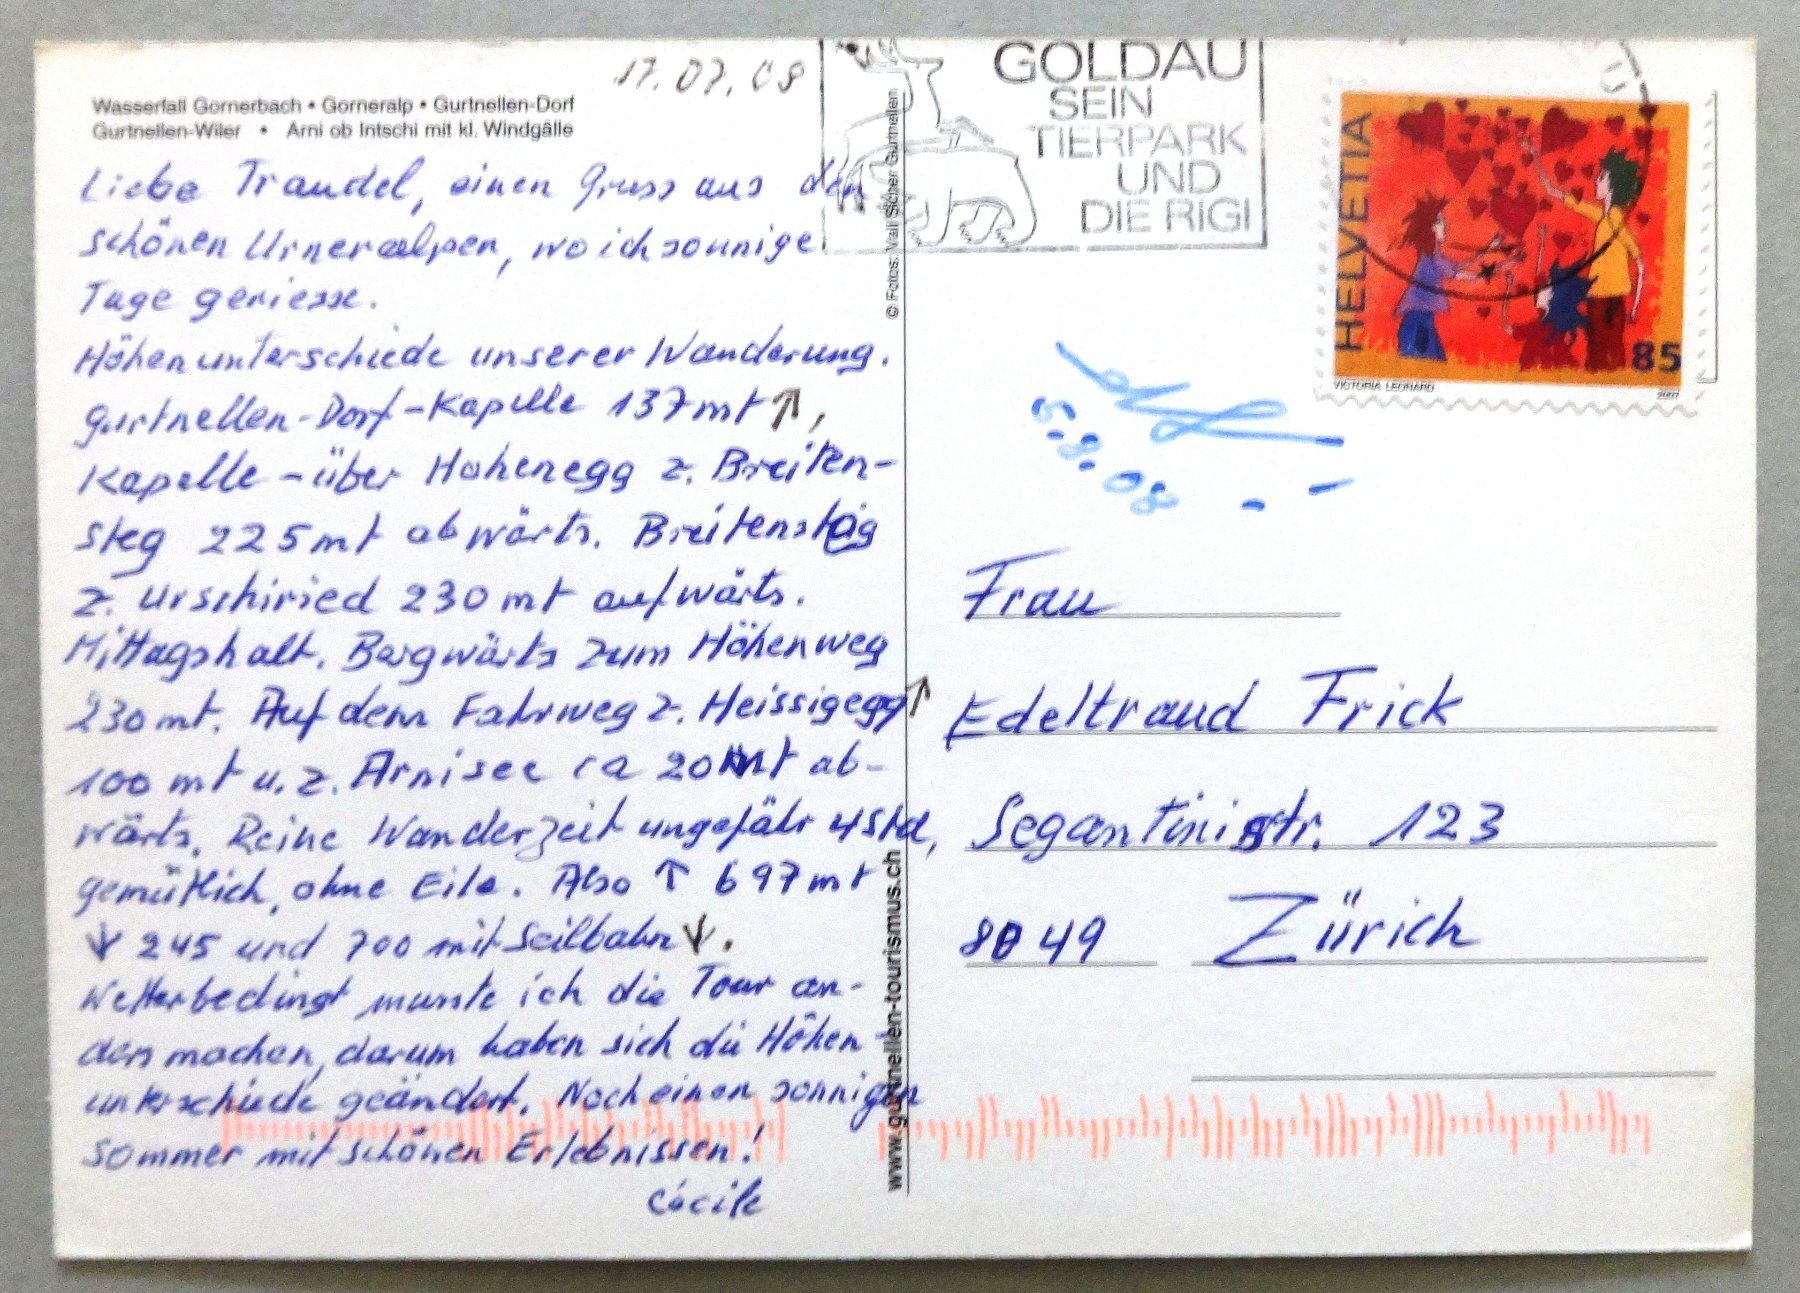 17.07.08
Wasserfall Gornerbach • Gorneralp • Gurtnellen-Dorf
Gurtnellen-Wiler • Arni ob Intschi mit kl. Windgälle
Liebe Traudel, einen Gruss aus den
schönen Urneralpen, wo ich sonnige
Tage geniesse.
Höhenunterschiede unserer Wanderung.
Gurtnellen-Dorf-Kapelle 137 mt ↑,
Kapelle - über Hohenegg z. Breiten-
steg 225 mt abwärts. Breitensteig
z. Urschiried 230 mt aufwärts.
Mittagshalt. Bergwärts zum Höhenweg
230 mt. Auf dem Fahrweg z. Heissigegg ↑
100 mt u. z. Arnisee ca 20 mt ab-
wärts. Reine Wanderzeit ungefähr 4 Std,
gemütlich, ohne Eile. Also ↑ 697 mt
↓ 245 und 700 mit Seilbahn ↓.
Wetterbedingt musste ich die Tour an-
ders machen, darum haben sich die Höhen-
unterschiede geändert. Noch einen sonnigen
Sommer mit schönen Erlebnissen!
Cécile
© Fotos: Vali Sicher Gurtnellen
www.gurtnellen-tourismus.ch
GOLDAU
SEIN
TIERPARK
UND
DIE RIGI
HELVETIA
85
VICTORIA LEONARD
2007
5.8.08
Frau
Edeltraud Frick
Segantinistr. 123
8049 Zürich